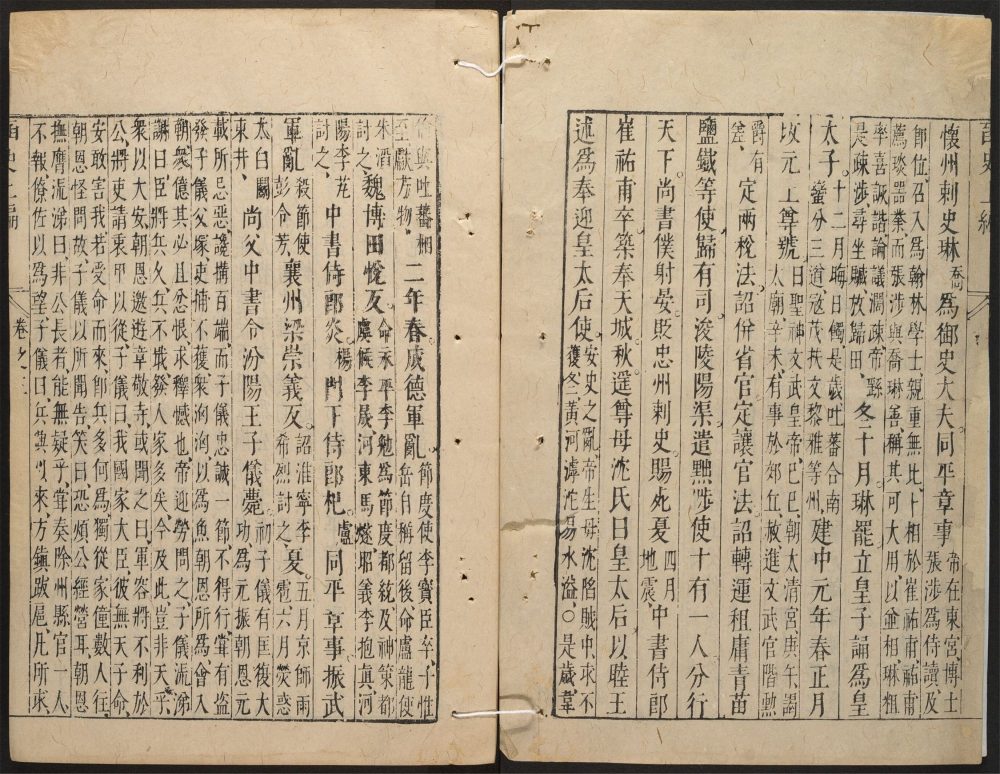 懷州刺史琳喬爲御史大夫同平章事帝在東宮博士張涉爲侍讀及
即位召入爲翰林學士親重無比卜相於崔祐甫祐甫薦琰器業而張涉與喬琳善稱其可大用以爲相琳粗
率喜詼諧論議濶疎帝繇是疎涉尋坐贓放歸田。冬十月琳罷立皇子誦爲皇
太子。十二月晦日觸是歲吐蕃合南蠻分三道寇茂扶文黎雅等州、建中元年春正月
攻元上尊號曰聖神文武皇帝巳巳朝太清宮庚午謁太廟辛未有事於郊丘赦進文武官階勲
爵有差、定兩稅法詔併省官定讓官法詔轉運租庸青苗
鹽鐵等使歸有司浚陵陽渠遣黜陟使十有一人分行
天下。尚書僕射晏貶忠州刺史賜死夏四月地震、中書侍郎
崔祐甫卒築奉天城秋遥尊母沈氏曰皇太后以睦王
述爲奉迎皇太后使安史之亂帝生母沈陷賊中求不獲冬黃河滹沱易水溢○是歲韋
倫與吐蕃相至獻方物、二年春成德軍亂節度使李寶臣卒子惟岳自稱留後命盧龍使
朱滔討之、魏博田悅反命永平李勉爲節度都統及神策都虞候李晟河東馬燧昭義李抱眞河
陽李芃討之、中書侍郎炎楊門下侍郎杞盧同平章事振武
軍亂殺節使彭令芳、襄州梁崇義反詔淮寧李希烈討之、夏五月京師雨雹六月熒惑
太白鬭東井、尚父中書令汾陽王子儀薨初子儀有匡復大功爲元振朝恩元
載所忌惡讒搆百端而子儀忠誠一節不得行嘗有盗發子儀父塚吏捕不獲衆洶洶以爲魚朝恩所爲會入
朝衆億其必且忿恨求釋憾也帝迎勞問之子儀流涕謝曰臣將兵久兵不戢發人冢多矣今及此豈非天乎
衆以大安朝恩邀遊章敬寺或聞之曰軍容將不利於公將吏請衷甲以從子儀曰我國家大臣彼無天子命
安敢害我若受命而來即兵多何爲獨從家僮數人往朝恩怪問故子儀以所聞告笑曰恐煩公經營耳朝恩
撫膺流涕曰非公長者能無疑乎嘗奏除州縣官一人不報僚佐以爲望子儀曰兵興以來方鎮跋扈凡所求
函史上編
卷之三